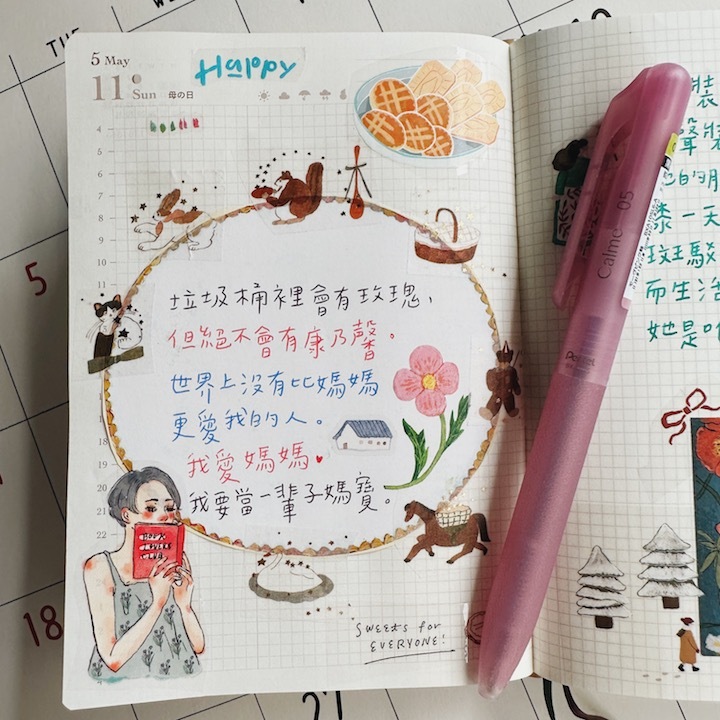 TUE
5 May
Happy
11
Sun
母の日
4
5
6
7
8
9
10
11
垃圾桶裡會有玫瑰、
但絕不會有康乃馨。
世界上沒有比媽媽
更愛我的人。
我愛媽媽
我要當一輩子媽寶。
19
20
21
22
Sweets for
EVERYONE!
裝
的明
一天
斑駁
而生活
她是
Calme 05
Pentel
5
18
27